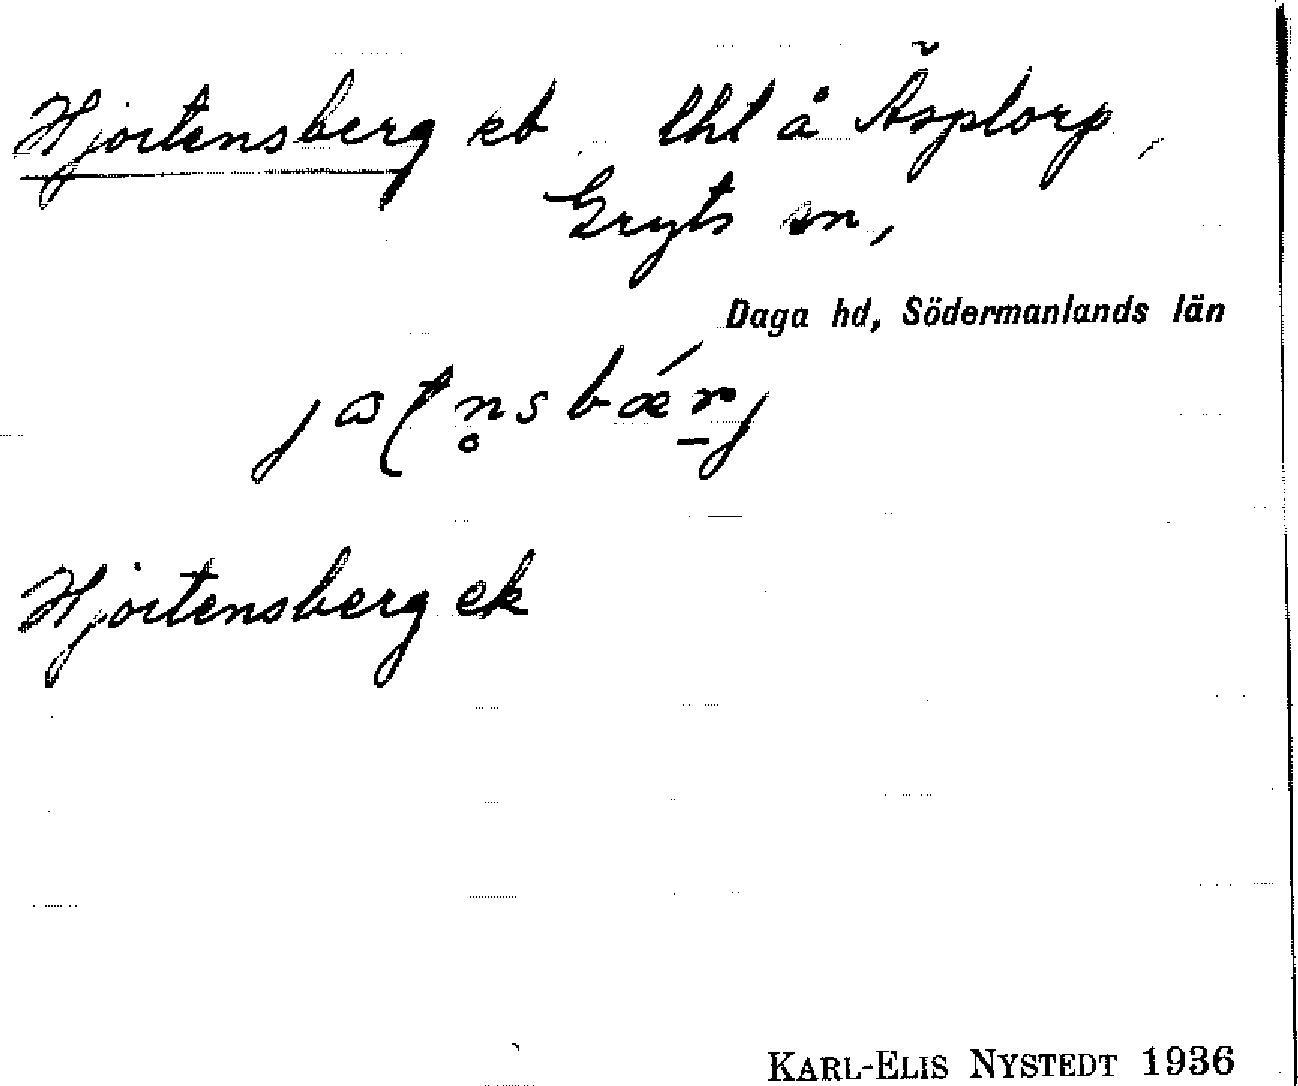 Hjortensberg eb lht å Äsptorp,
Gryts sn,
Daga hd, Södermanlands län
Hjortensberg ek
KARL-ELIS NYSTEDT 1936